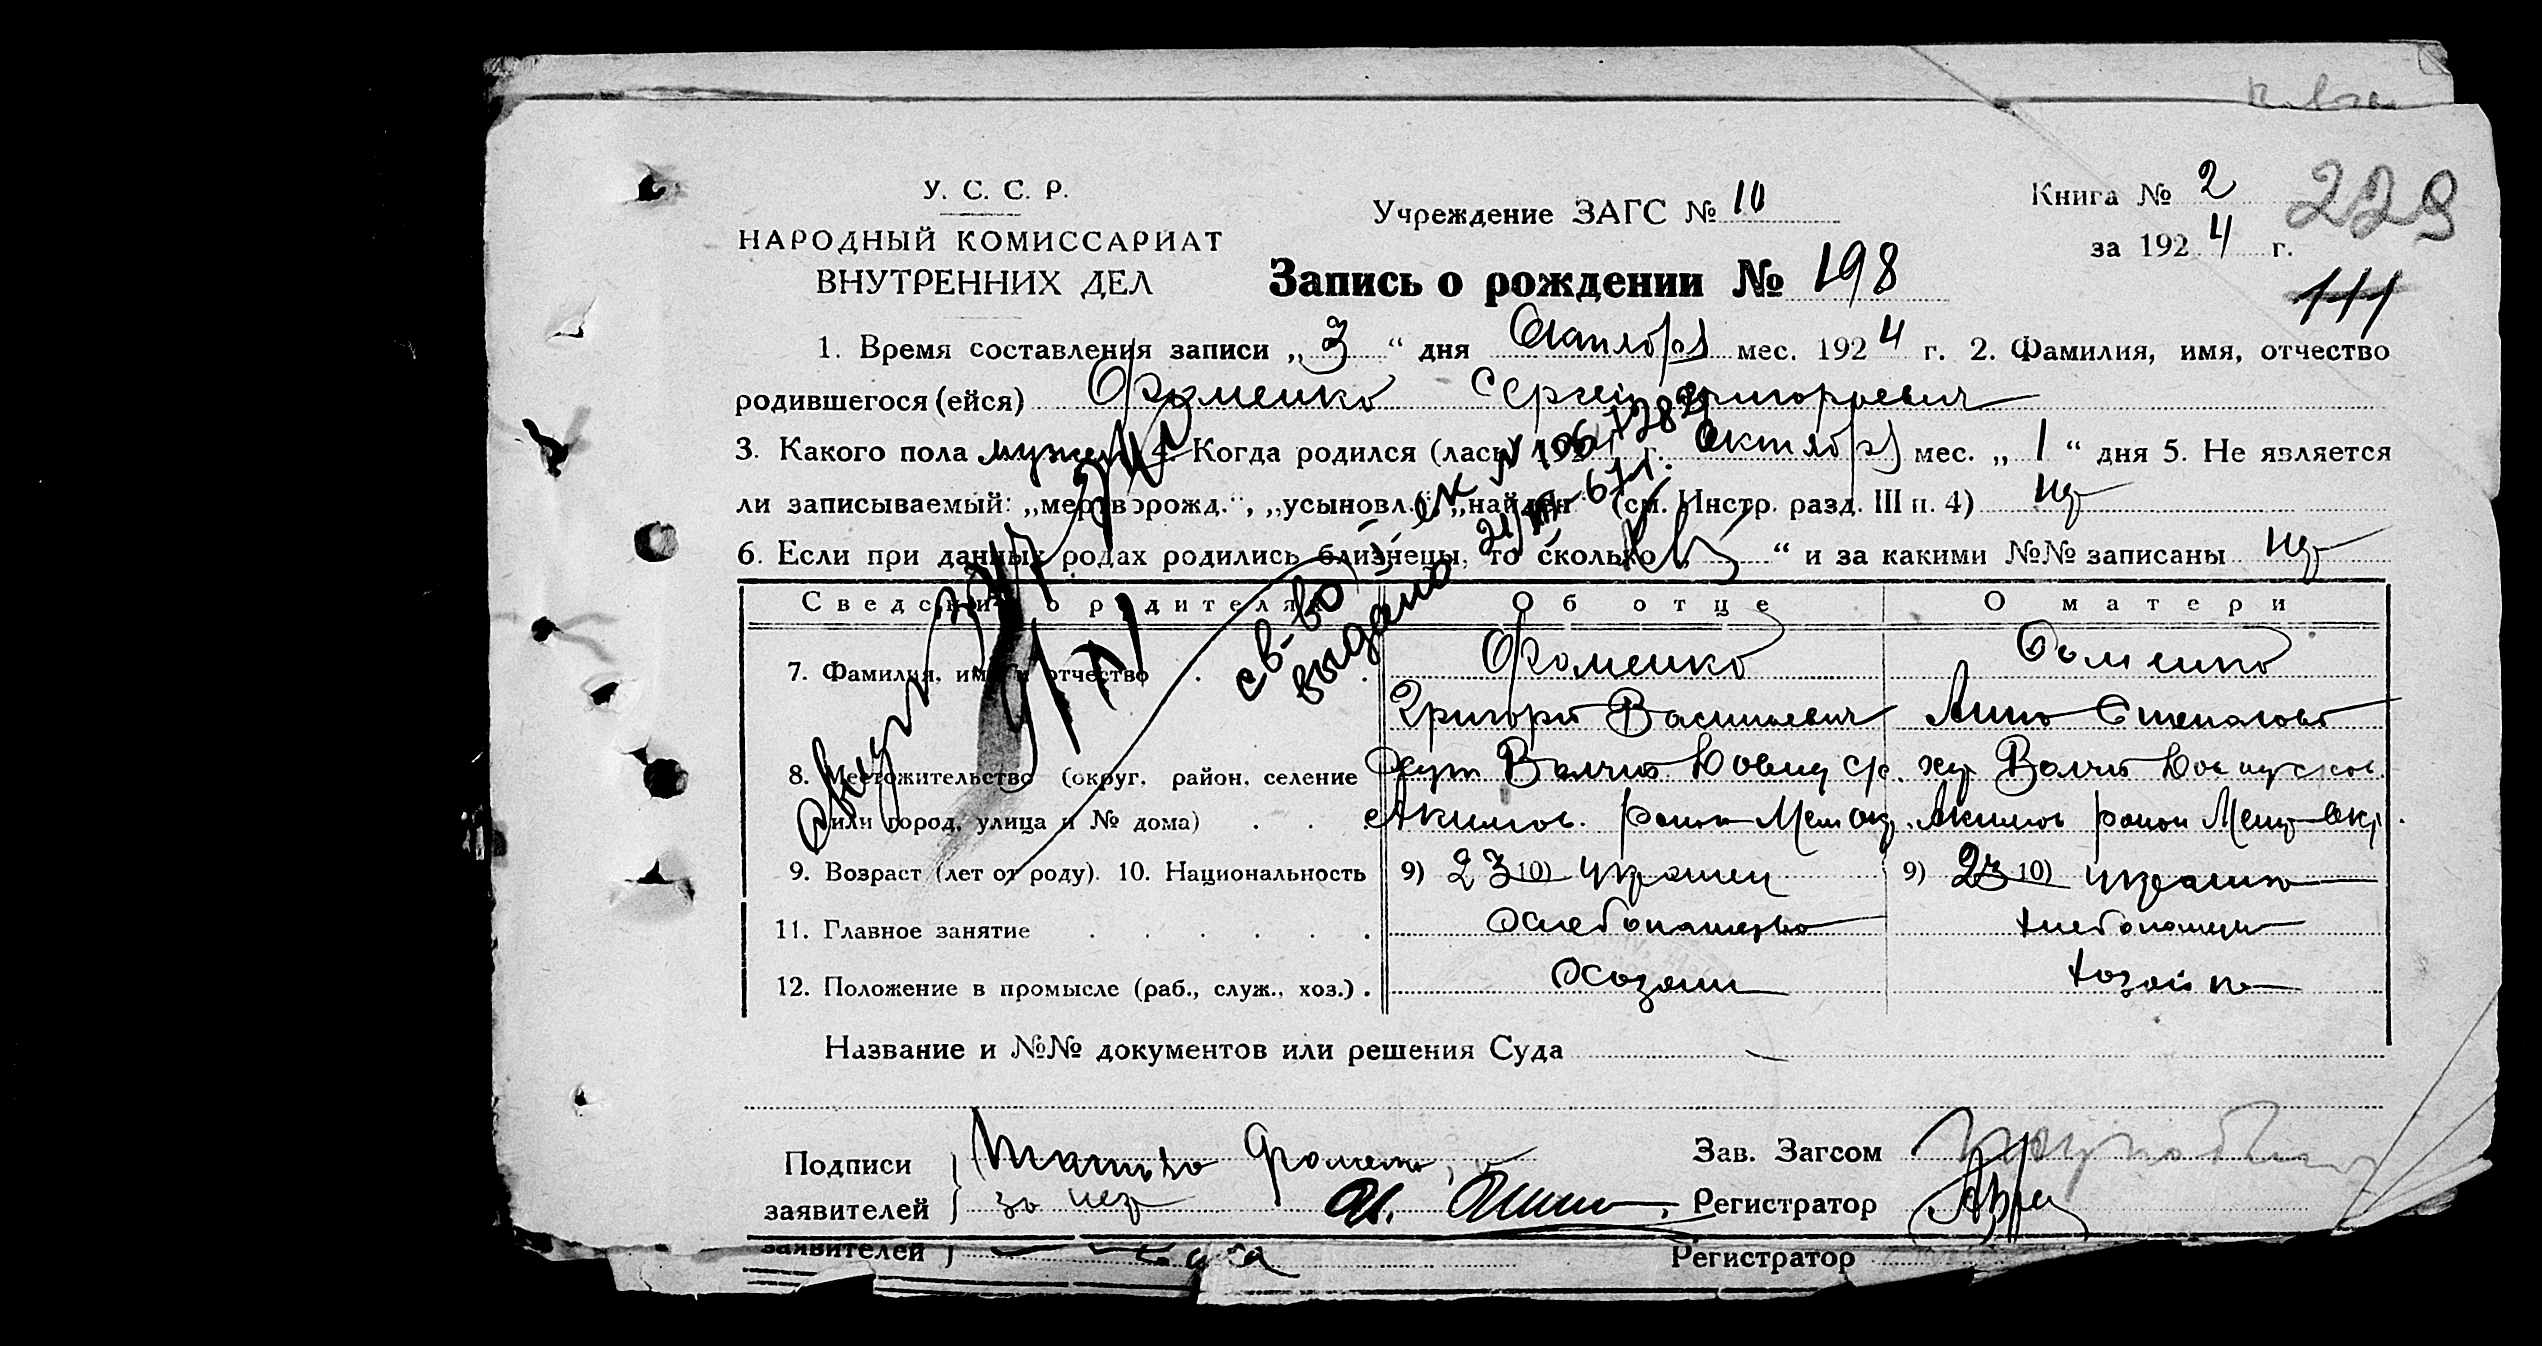 У. С. С. Р.
НАРОДНЫЙ КОМИССАРИАТ
ВНУТРЕННИХ ДЕЛ
Учреждение ЗАГС № 10
Книга № 2
229
за 1924 г.
111
Запись о рождении № 198
1. Время составления записи „3“ дня Октября мес. 1924 г. 2. Фамилия, имя, отчество
родившегося (ейся) Фоменко Сергей Григорьевич
3. Какого пола мужск 4. Когда родился (лась) 192 г. октября мес. „1“ дня 5. Не является
ли записываемый: „мертворожд.“, „усыновл.“, „найден“ (см. Инстр. разд. III п. 4) нет
6. Если при данных родах родились близнецы, то сколько „ “ и за какими №№ записаны нет
св-во
выдано 21/VII-67г.
Сведения о родителях Об отце О матери
7. Фамилия, имя и отчество Фоменко Фоменко
Григорий Васильевич Анна Степановна
8. Местожительство (округ, район, селение хут Волчий хут Волчий
или город, улица и № дома) Акимов. район Мел окр. Акимов район Мелит окр.
9. Возраст (лет от роду). 10. Национальность 9) 23 10) украинец 9) 23 10) украинка
11. Главное занятие Хлебопашество хлебопашец
12. Положение в промысле (раб., служ., хоз.) Хозяин хозяйка
Название и №№ документов или решения Суда —
Подписи
заявителей
Фоменко
за нег
Зав. Загсом
Регистратор
заявителей
Регистратор